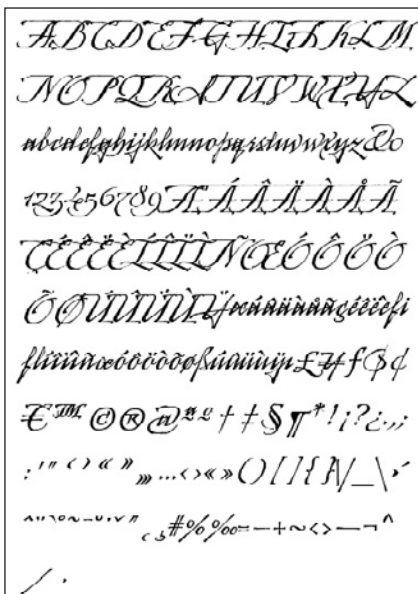 ABCDEFGHIJKLM
NOPQRSTUVWXYZ
abcdefghijklmnopqrstuvwxyz&
1234567890ÆÁÂÄÀÅÃ
ÇÉÊËÈÍÎÏÌÑŒÓÔÖÒ
ÕØÚÛÜÙŸæáâäàåãçéêëèfi
flíîïìñœóôöòõøßúûüùÿ£¥ƒ$¢
€™©®@ªº†‡§¶*!¡?¿.,;
:'"‘’“”‚„…‹›«»()[]{}|/_\
#%‰=—+~<>—¬^
/·